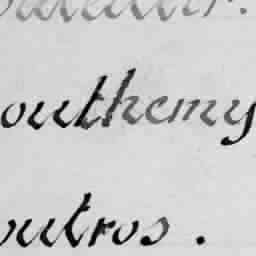 outhemy
outros.